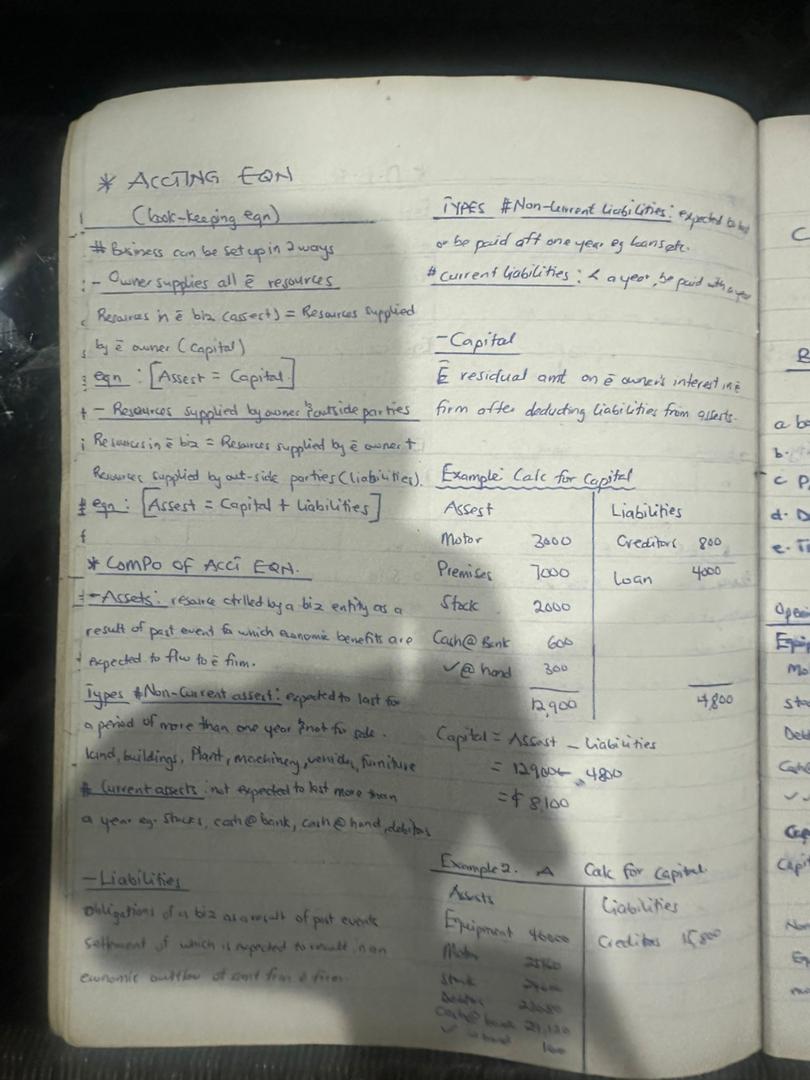 * ACCTING EQN
(book-keeping eqn)
# Business can be set up in 2 ways
- Owner supplies all ē resources
Resources in ē biz (assest) = Resources supplied
by ē owner (capital)
eqn : [Assest = Capital]
- Resources supplied by owner & outside parties
Resources in ē biz = Resources supplied by ē owner +
Resources supplied by out-side parties (liabilities).
eqn : [Assest = Capital + Liabilities]
* COMPO OF ACCT EQN.
- Assets: resource ctrlled by a biz entity as a
result of past event fo which economic benefits are
expected to flw to ē firm.
Types # Non-Current assert: expected to last for
a period of more than one year & not for sale.
land, buildings, Plant, machinery, vehicles, furniture
# Current assects: not expected to last more than
a year eg. Stocks, cash@bank, cash@hand, debtors
- Liabilities
Obligations of a biz as a result of past events
settlment of which is expected to result in an
economic outflow of from ē firm.
TYPES # Non-Current liabilities: expected to
or be paid off one year eg loans etc.
# Current liabilities: < a year, be paid with a year
- Capital
Ē residual amt on ē owner's interest in ē
firm after deducting liabilities from assests.
Example: Calc for Capital
Assest Liabilities
Motor 3000 Creditors 800
Premises 7000 Loan 4000
Stock 2000
Cash@Bank 600
✓@hand 300
12,900 4,800
Capital = Assest - Liabilities
= 12900 - 4800
= 8,100
Example 2. A Calc for Capital.
Assets Liabilities
Equipment 40000 Creditors 15,800
Motor
Stock
Debtors
Cash@bank
✓ hand